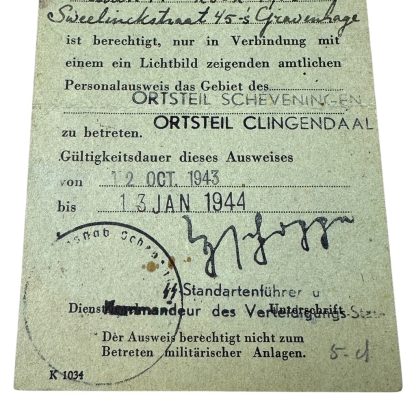 Sweelinckstraat 45 - 's Gravenhage
ist berechtigt, nur in Verbindung mit
einem ein Lichtbild zeigenden amtlichen
Personalausweis das Gebiet des
ORTSTEIL SCHEVENINGEN
ORTSTEIL CLINGENDAAL
zu betreten.
Gültigkeitsdauer dieses Ausweises
von 12 OCT. 1943
bis 13 JAN 1944
Standartenführer u
Kommandeur des Verteidigungs-
Unterschrift
Der Ausweis berechtigt nicht zum
Betreten militärischer Anlagen.
K 1034